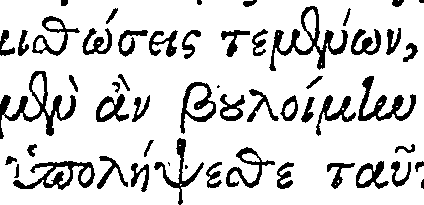 ισθώσεις τεμένων,
μὲν ἂν βουλοίμην
ὑπολήψεσθε ταῦτ